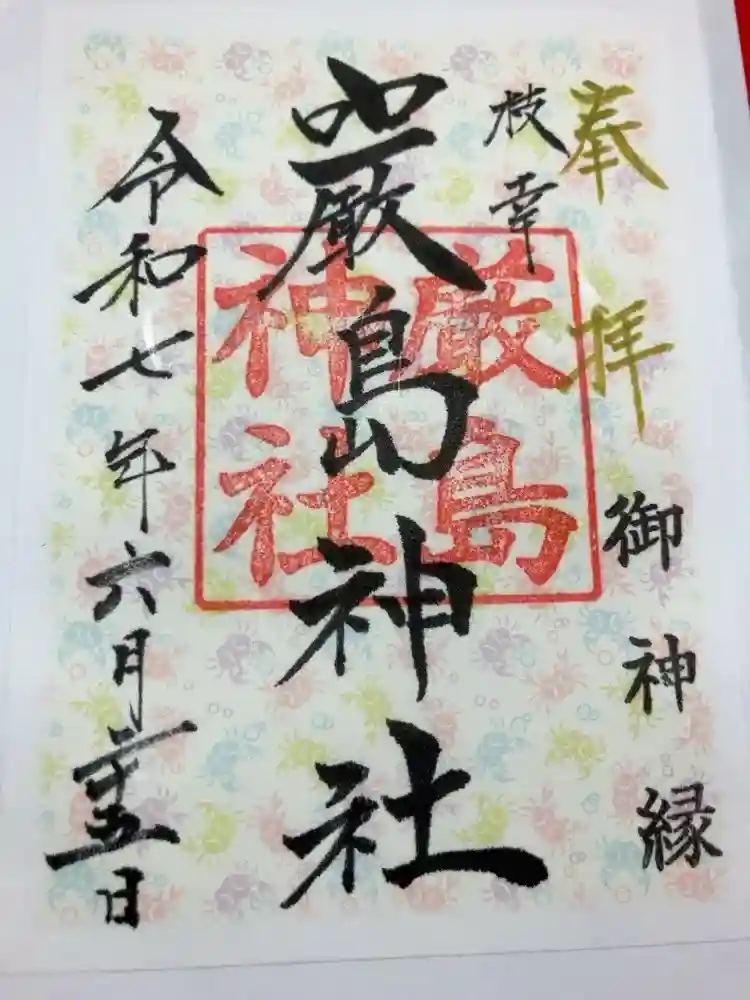 奉拝
御神縁
枝幸
巖島神社
厳島
神社
令和七年六月二十五日